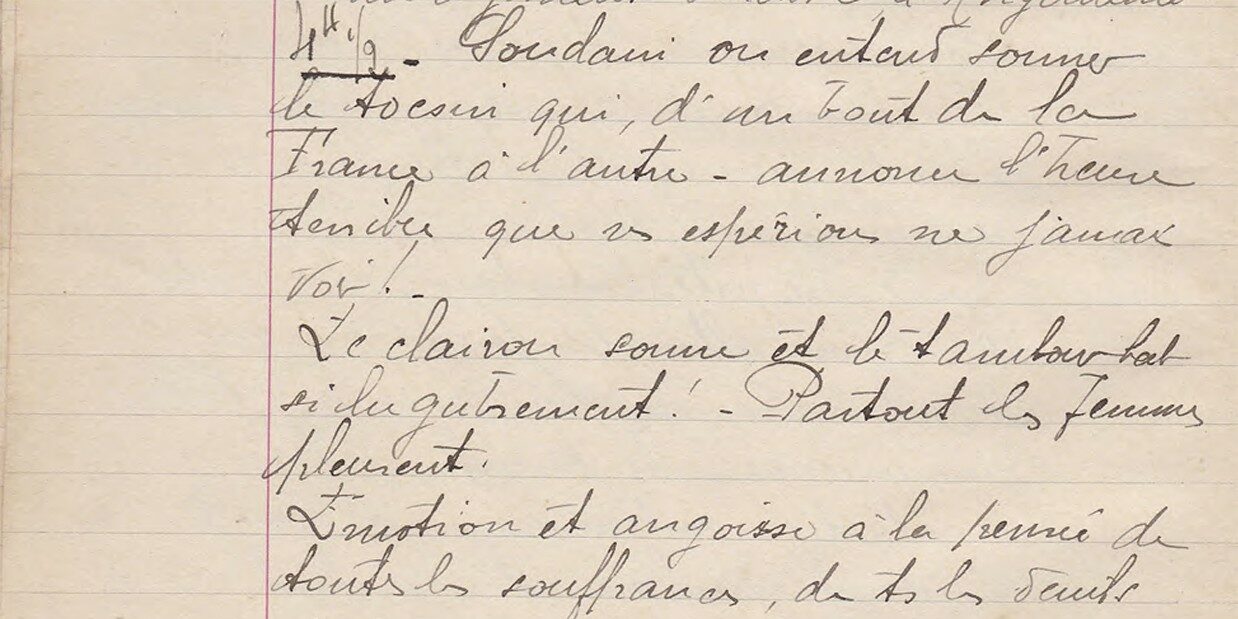 4H. 1/2 - Soudain on entend sonner
le tocsin qui, d'un bout de la
France à l'autre - annonce l'heure
terrible que ns espérions ne jamais
voir! -
Le clairon sonne et le tambour bat
si lugubrement! - Partout les femmes
pleurent.
Emotion et angoisse à la pensée de
toutes les souffrances, de ts les deuils